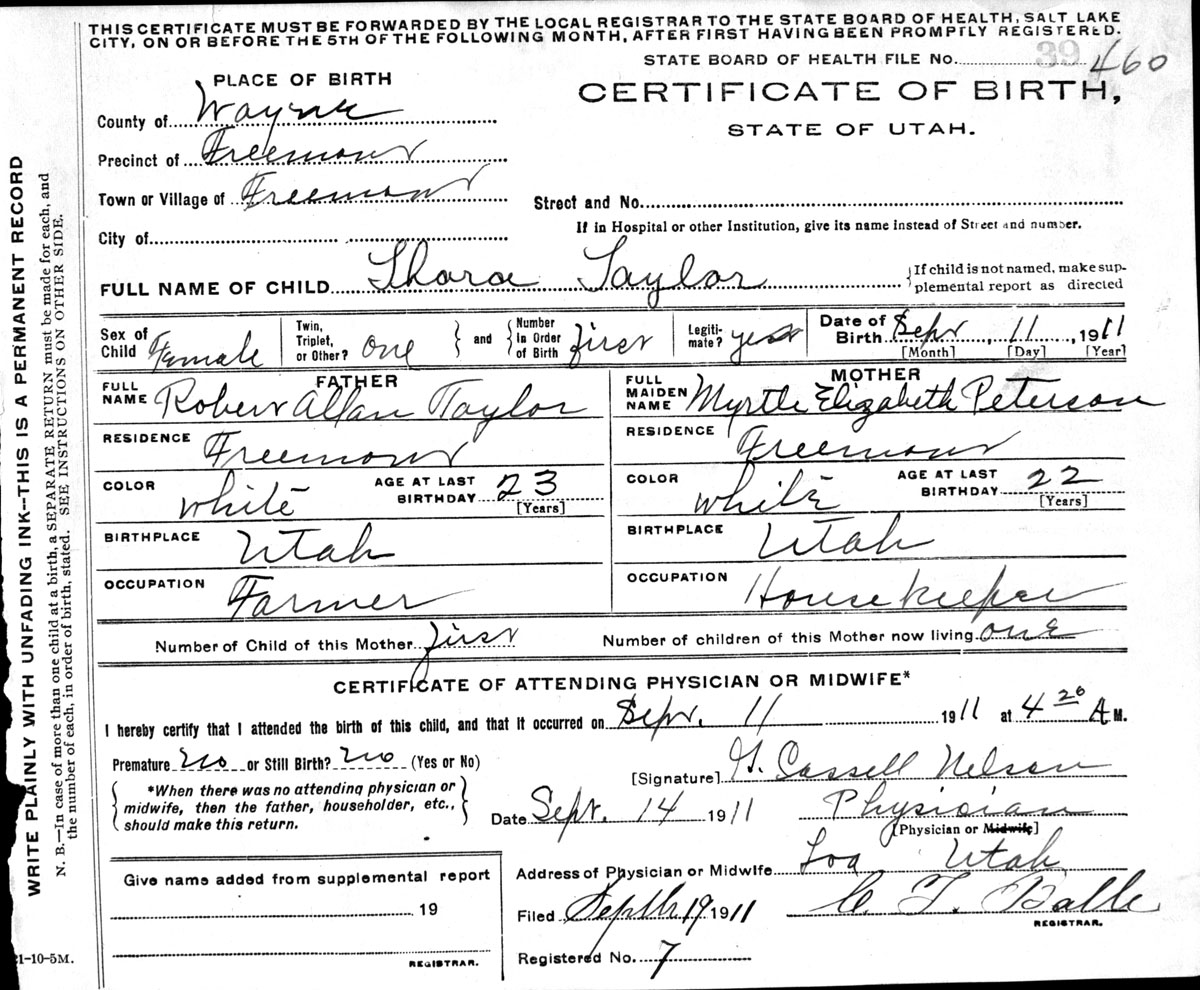 THIS CERTIFICATE MUST BE FORWARDED BY THE LOCAL REGISTRAR TO THE STATE BOARD OF HEALTH, SALT LAKE
CITY, ON OR BEFORE THE 5TH OF THE FOLLOWING MONTH, AFTER FIRST HAVING BEEN PROMPTLY REGISTERED.
STATE BOARD OF HEALTH FILE No. 39 460
PLACE OF BIRTH
CERTIFICATE OF BIRTH,
STATE OF UTAH.
County of Wayne
Precinct of Freemont
Town or Village of Freemont
Street and No.
City of
If in Hospital or other Institution, give its name instead of Street and number.
FULL NAME OF CHILD Thora Taylor
If child is not named, make sup-
plemental report as directed
Sex of Child Female
Twin, Triplet, or Other? one
and Number In Order of Birth first
Legiti- mate? yes
Date of Birth Sept, 11, 1911
[Month] [Day] [Year]
FATHER
FULL NAME Robert Allan Taylor
RESIDENCE Freemont
COLOR white AGE AT LAST BIRTHDAY 23
[Years]
BIRTHPLACE Utah
OCCUPATION Farmer
MOTHER
FULL MAIDEN NAME Myrtle Elizabeth Peterson
RESIDENCE Freemont
COLOR white AGE AT LAST BIRTHDAY 22
[Years]
BIRTHPLACE Utah
OCCUPATION Housekeeper
Number of Child of this Mother first Number of children of this Mother now living one
CERTIFICATE OF ATTENDING PHYSICIAN OR MIDWIFE*
I hereby certify that I attended the birth of this child, and that it occurred on Sept. 11 1911 at 4 20 A M.
Premature no or Still Birth? no (Yes or No)
[Signature] Cassell Nelson
*When there was no attending physician or
midwife, then the father, householder, etc.,
should make this return.
Date Sept. 14 1911 Physician
[Physician or Midwife]
Address of Physician or Midwife Loa Utah
Give name added from supplemental report
19
REGISTRAR.
Filed Septbr 19 1911
REGISTRAR.
Registered No. 7
WRITE PLAINLY WITH UNFADING INK--THIS IS A PERMANENT RECORD
N. B.—In case of more than one child at a birth, a SEPARATE RETURN must be made for each, and
the number of each, in order of birth, stated. SEE INSTRUCTIONS ON OTHER SIDE.
21-10-5M.